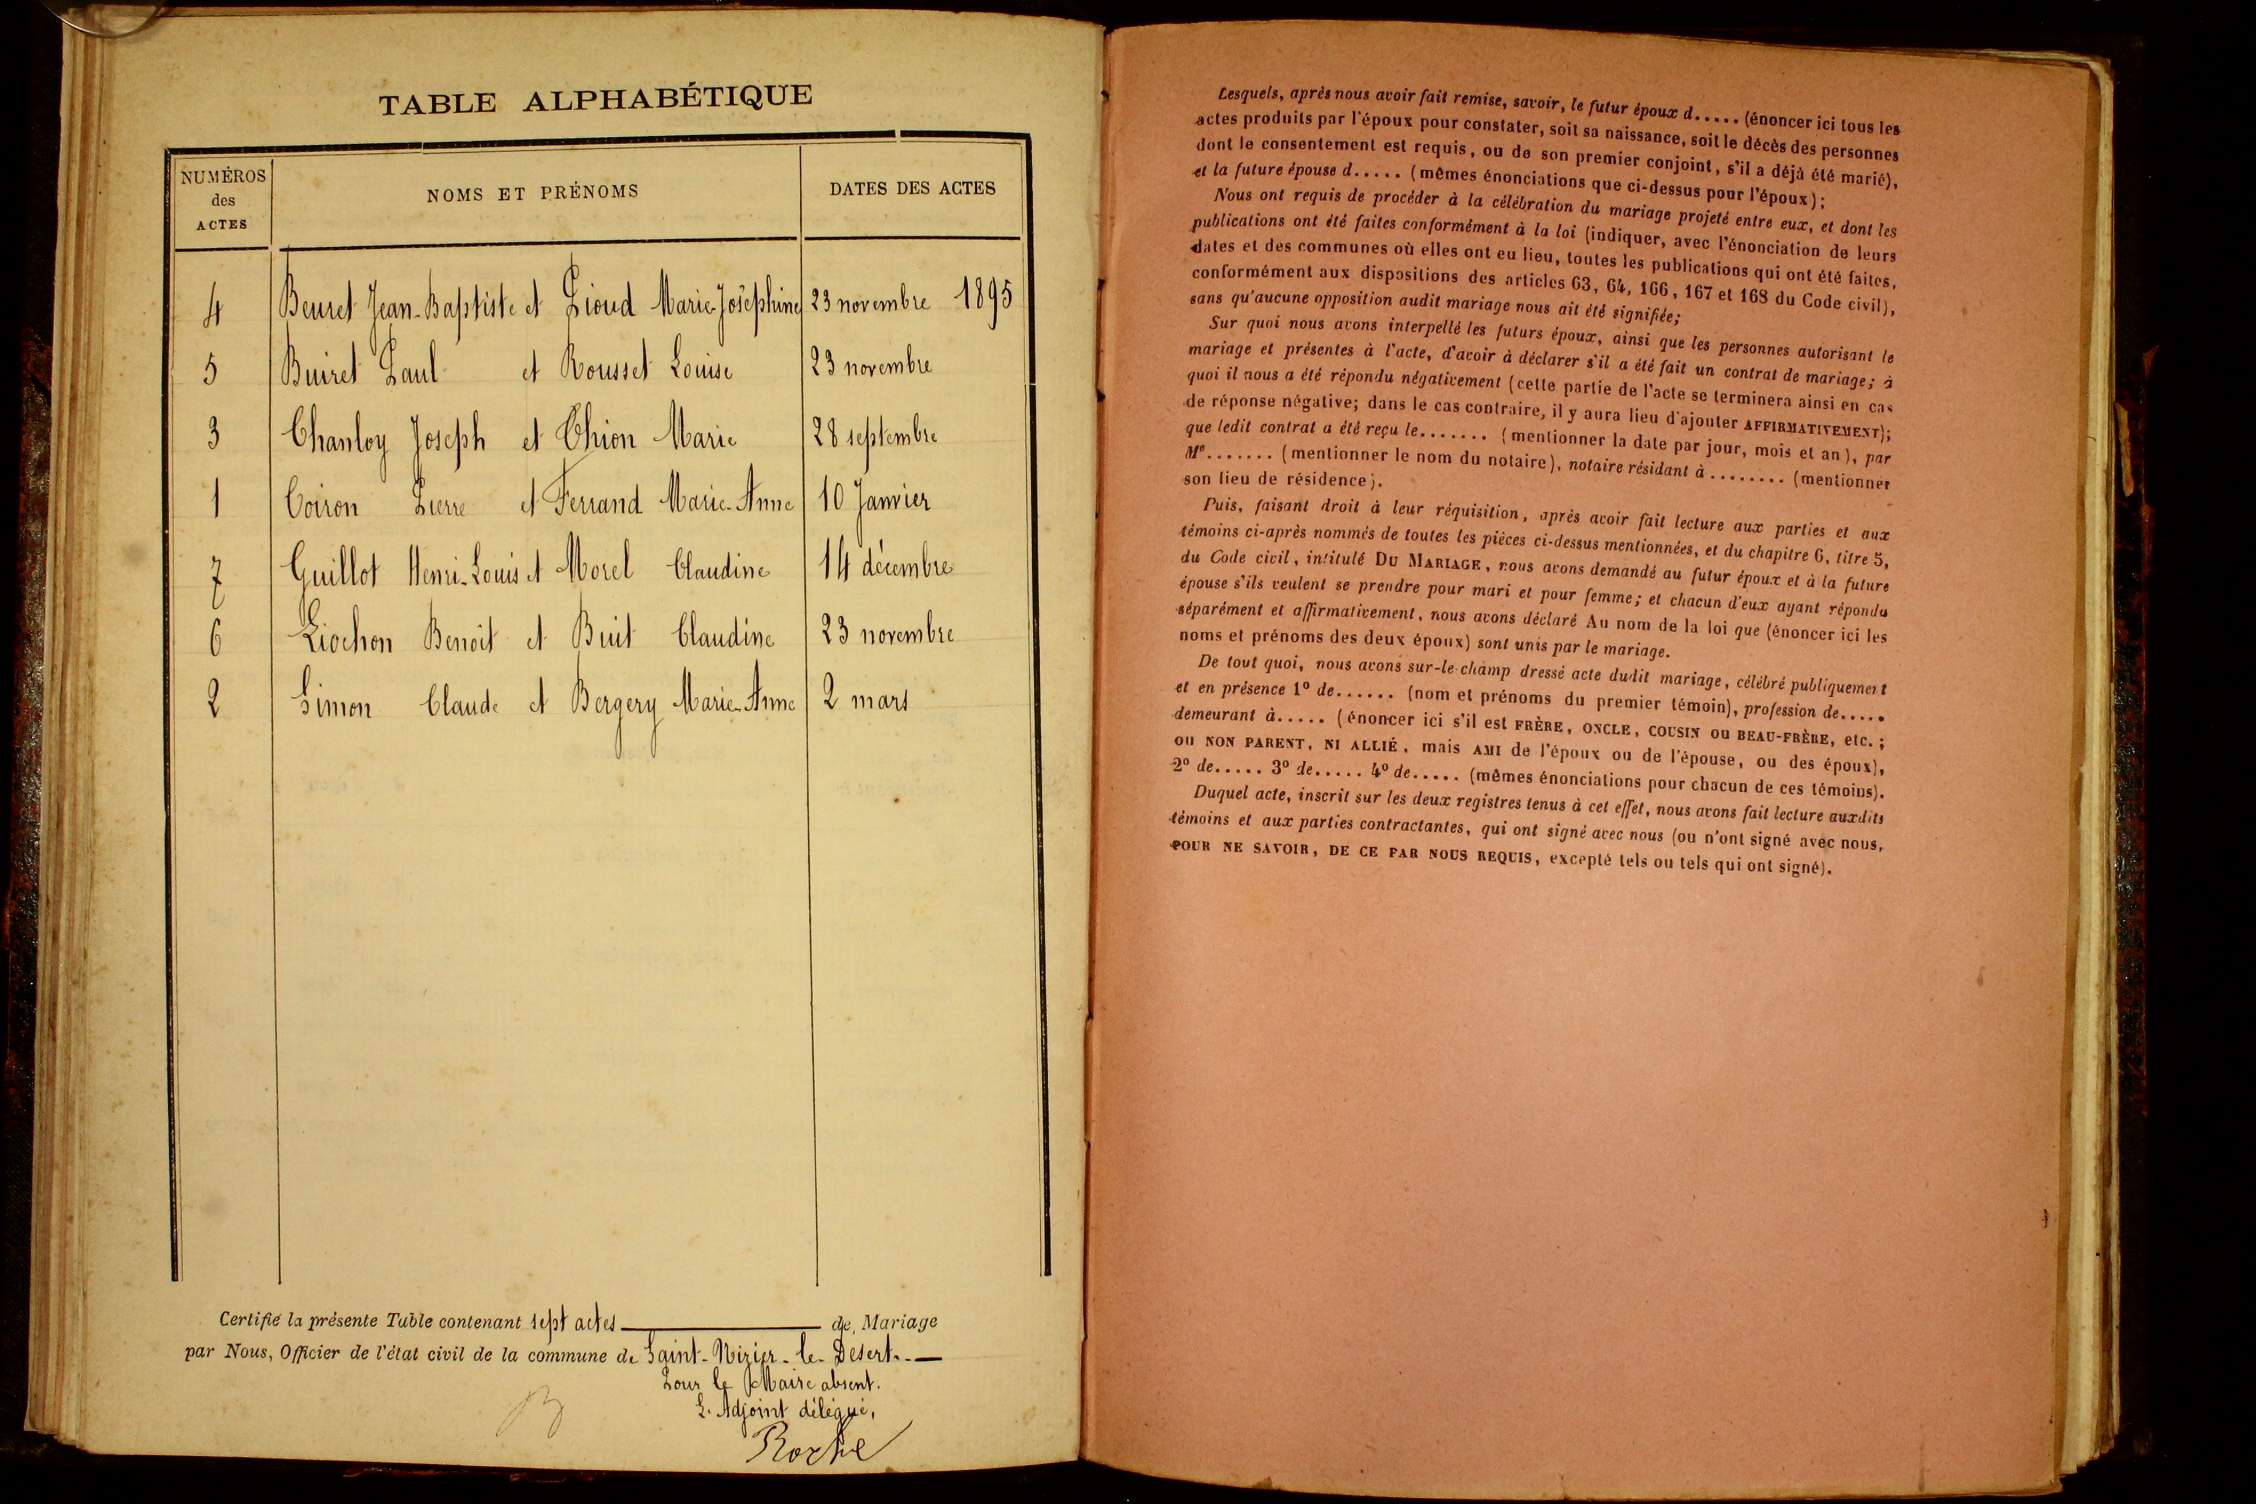 TABLE ALPHABÉTIQUE
NUMÉROS des ACTES NOMS ET PRÉNOMS DATES DES ACTES
4 Beuret Jean-Baptiste et Pioud Marie-Joséphine 23 novembre 1895
5 Buiret Paul et Rousset Louise 23 novembre
3 Chanloy Joseph et Chion Marie 28 septembre
1 Coiron Pierre et Ferrand Marie-Anne 10 Janvier
7 Guillot Henri-Louis et Morel Claudine 14 décembre
6 Liochon Benoît et Buit Claudine 23 novembre
2 Simon Claude et Bergery Marie-Anne 2 mars
Certifié la présente Table contenant sept actes de Mariage
par Nous, Officier de l'état civil de la commune de Saint-Nizier-le-Désert.
Pour le Maire absent.
L'Adjoint délégué,
Roche
Lesquels, après nous avoir fait remise, savoir, le futur époux d..... (énoncer ici tous les
actes produits par l'époux pour constater, soit sa naissance, soit le décès des personnes
dont le consentement est requis, ou de son premier conjoint, s'il a déjà été marié),
et la future épouse d..... (mêmes énonciations que ci-dessus pour l'époux);
Nous ont requis de procéder à la célébration du mariage projeté entre eux, et dont les
publications ont été faites conformément à la loi (indiquer, avec l'énonciation de leurs
dates et des communes où elles ont eu lieu, toutes les publications qui ont été faites,
conformément aux dispositions des articles 63, 64, 166, 167 et 168 du Code civil),
sans qu'aucune opposition audit mariage nous ait été signifiée;
Sur quoi nous avons interpellé les futurs époux, ainsi que les personnes autorisant le
mariage et présentes à l'acte, d'avoir à déclarer s'il a été fait un contrat de mariage; à
quoi il nous a été répondu négativement (cette partie de l'acte se terminera ainsi en cas
de réponse négative; dans le cas contraire, il y aura lieu d'ajouter AFFIRMATIVEMENT);
que ledit contrat a été reçu le....... (mentionner la date par jour, mois et an), par
Me....... (mentionner le nom du notaire), notaire résidant à ........ (mentionner
son lieu de résidence).
Puis, faisant droit à leur réquisition, après avoir fait lecture aux parties et aux
témoins ci-après nommés de toutes les pièces ci-dessus mentionnées, et du chapitre 6, titre 5,
du Code civil, intitulé DU MARIAGE, nous avons demandé au futur époux et à la future
épouse s'ils veulent se prendre pour mari et pour femme; et chacun d'eux ayant répondu
séparément et affirmativement, nous avons déclaré Au nom de la loi que (énoncer ici les
noms et prénoms des deux époux) sont unis par le mariage.
De tout quoi, nous avons sur-le-champ dressé acte dudit mariage, célébré publiquement
et en présence 1º de...... (nom et prénoms du premier témoin), profession de.....
demeurant à..... (énoncer ici s'il est FRÈRE, ONCLE, COUSIN ou BEAU-FRÈRE, etc.;
ou NON PARENT, NI ALLIÉ, mais AMI de l'époux ou de l'épouse, ou des époux),
2º de..... 3º de..... 4º de..... (mêmes énonciations pour chacun de ces témoins).
Duquel acte, inscrit sur les deux registres tenus à cet effet, nous avons fait lecture auxdits
témoins et aux parties contractantes, qui ont signé avec nous (ou n'ont signé avec nous,
POUR NE SAVOIR, DE CE PAR NOUS REQUIS, excepté tels ou tels qui ont signé).